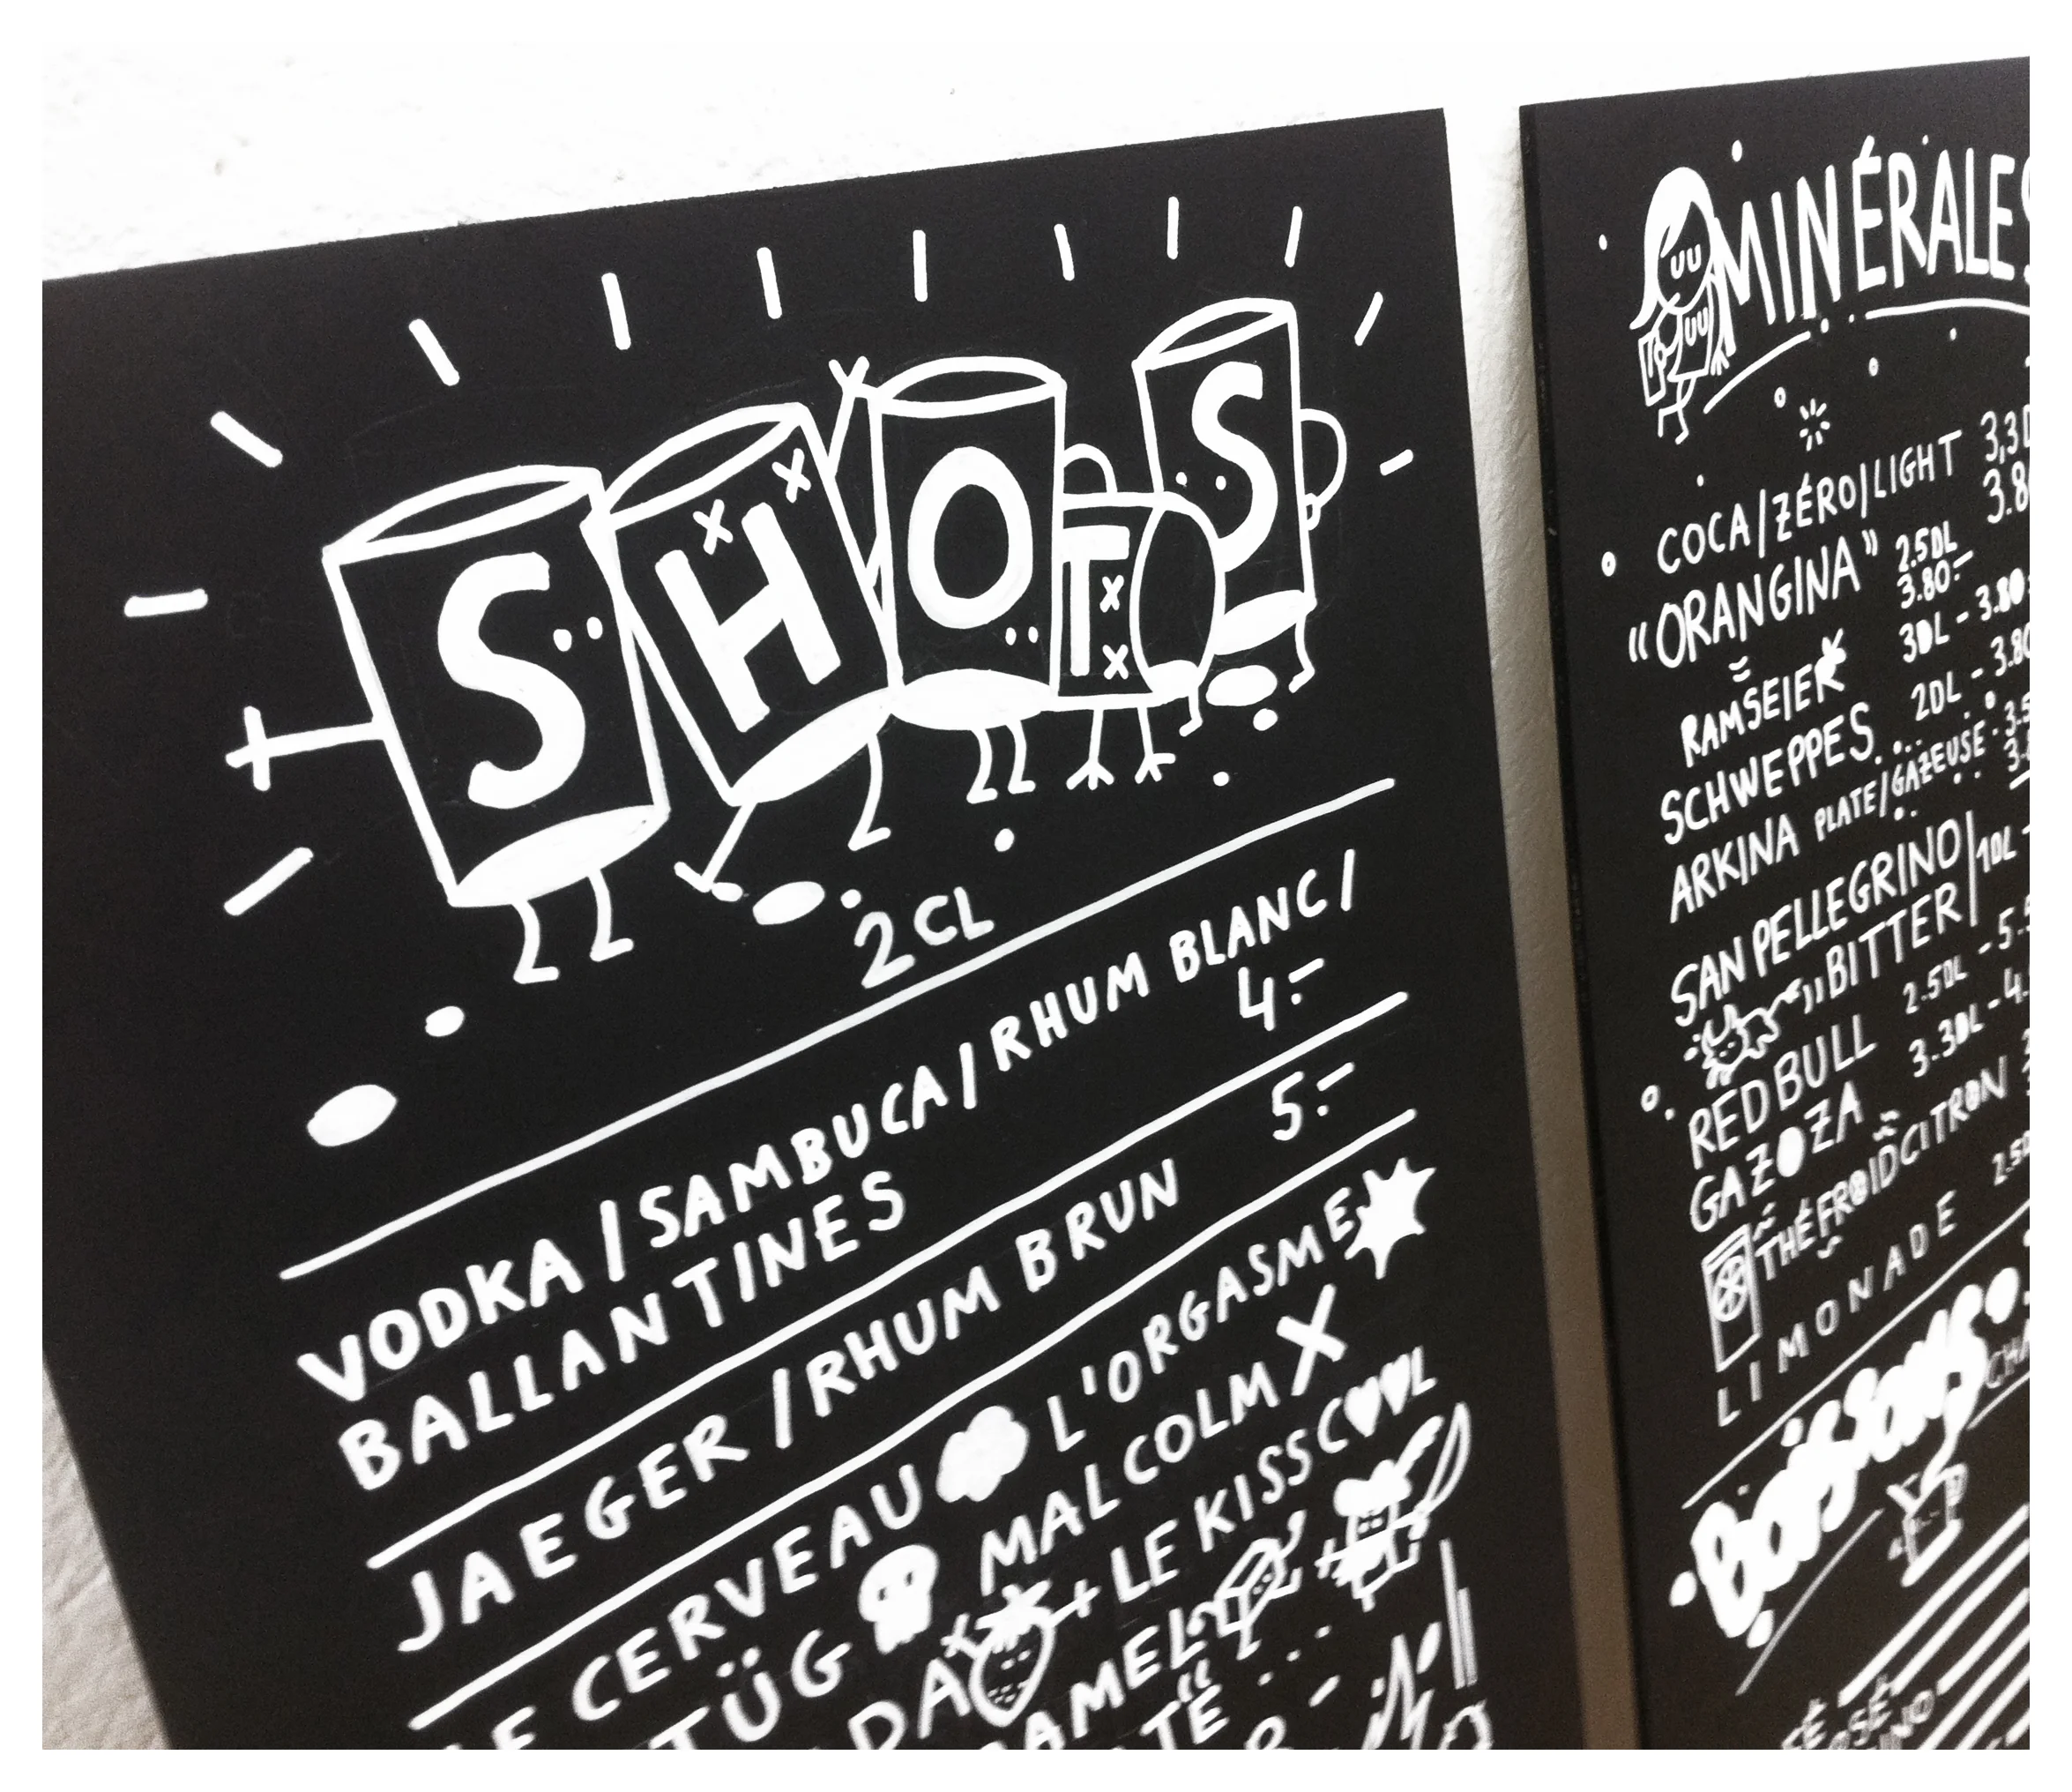 SHOTS
2CL
VODKA / SAMBUCA / RHUM BLANC /
BALLANTINES 4.-
JAEGER / RHUM BRUN 5.-
CERVEAU L'ORGASME
MALCOLM X
LE KISSCOOL
MINÉRALES
COCA/ZÉRO/LIGHT
"ORANGINA" 2.5DL
3.80.-
RAMSEIER 3DL - 3.80
SCHWEPPES 2DL - 3.80
ARKINA PLATE/GAZEUSE
SAN PELLEGRINO 10L
BITTER
REDBULL 2.5DL
GAZOZA 3.3DL
THÉ FROID CITRON
LIMONADE
BOISSONS